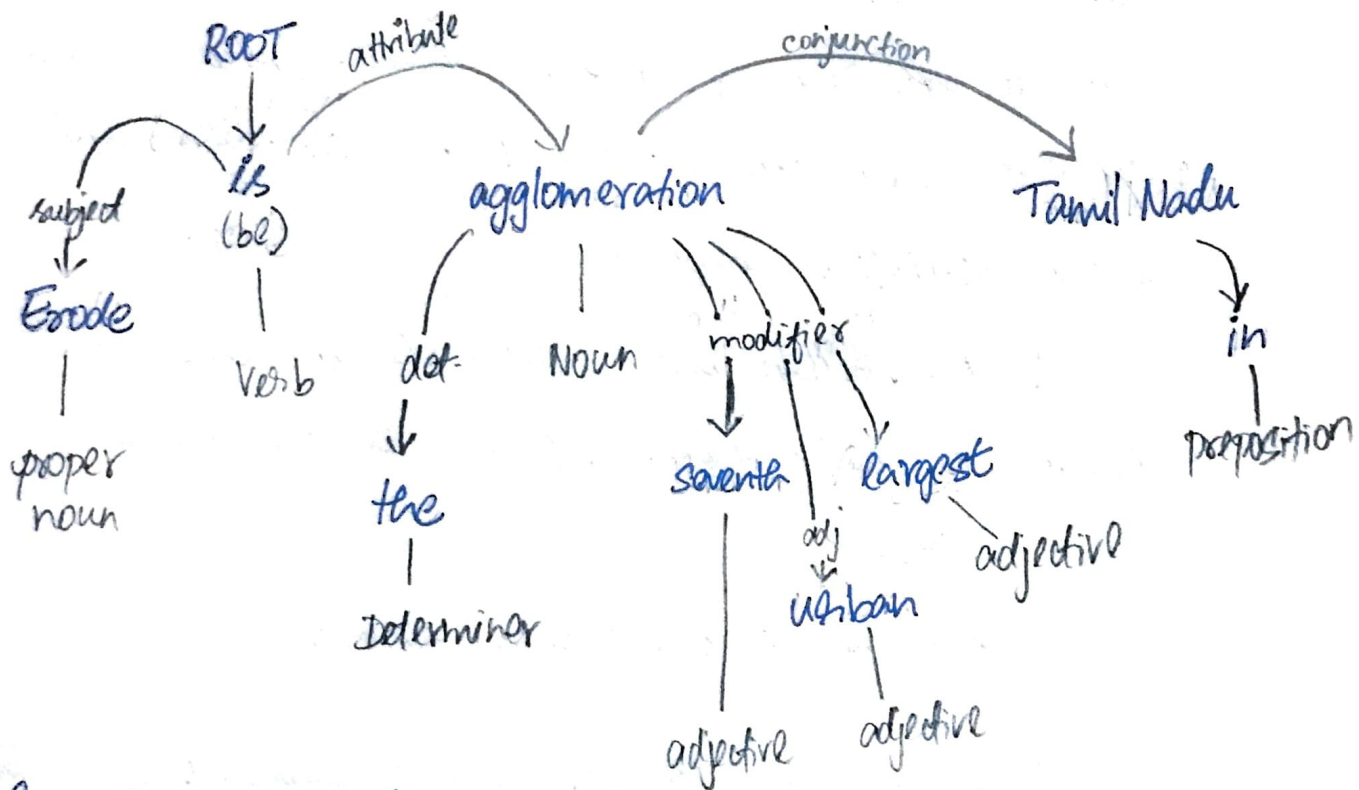 ROOT
attribute
conjunction
is
(be)
subject
agglomeration
Tamil Nadu
Erode
Verb
det.
Noun
modifier
in
proper
noun
the
seventh
largest
preposition
adj
urban
adjective
Determiner
adjective
adjective